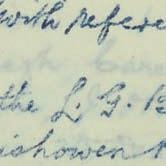 with refere
the L. G. B
ishowen